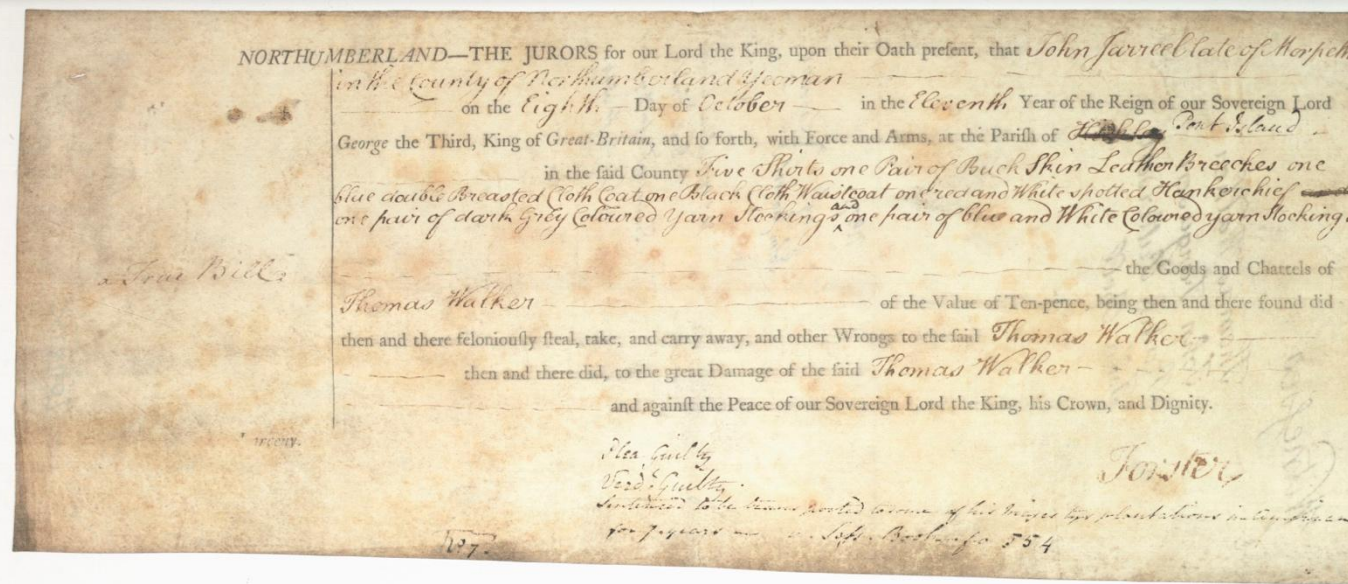 NORTHUMBERLAND—THE JURORS for our Lord the King, upon their Oath preſent, that John Jarreel late of Morpeth
in the County of Northumberland Yeoman
on the Eighth Day of October in the Eleventh Year of the Reign of our Sovereign Lord
George the Third, King of Great-Britain, and ſo forth, with Force and Arms, at the Pariſh of Pont Island
in the ſaid County Five Shirts one Pair of Buck Skin Leather Breeches one
blue double Breasted Cloth Coat one Black Cloth Waistcoat one red and White spotted Hankerchief
one pair of dark Grey Coloured Yarn Stockings and one pair of blue and White Coloured yarn Stockings
a True Bill
the Goods and Chattels of
Thomas Walker of the Value of Ten-pence, being then and there found did
then and there feloniouſly ſteal, take, and carry away, and other Wrongs to the ſaid Thomas Walker
then and there did, to the great Damage of the ſaid Thomas Walker
and againſt the Peace of our Sovereign Lord the King, his Crown, and Dignity.
Plea Guilty
Forster
Verdt Guilty
Sentenced to be transported to some of his Majestys plantations in America
for 7 years 554
No 7.